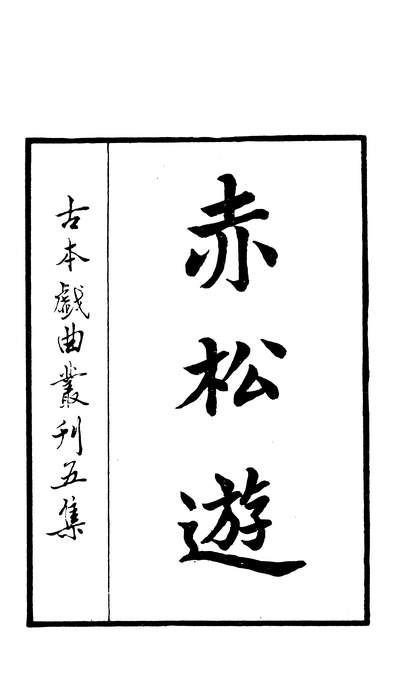 赤松遊
古本戲曲叢刊五集